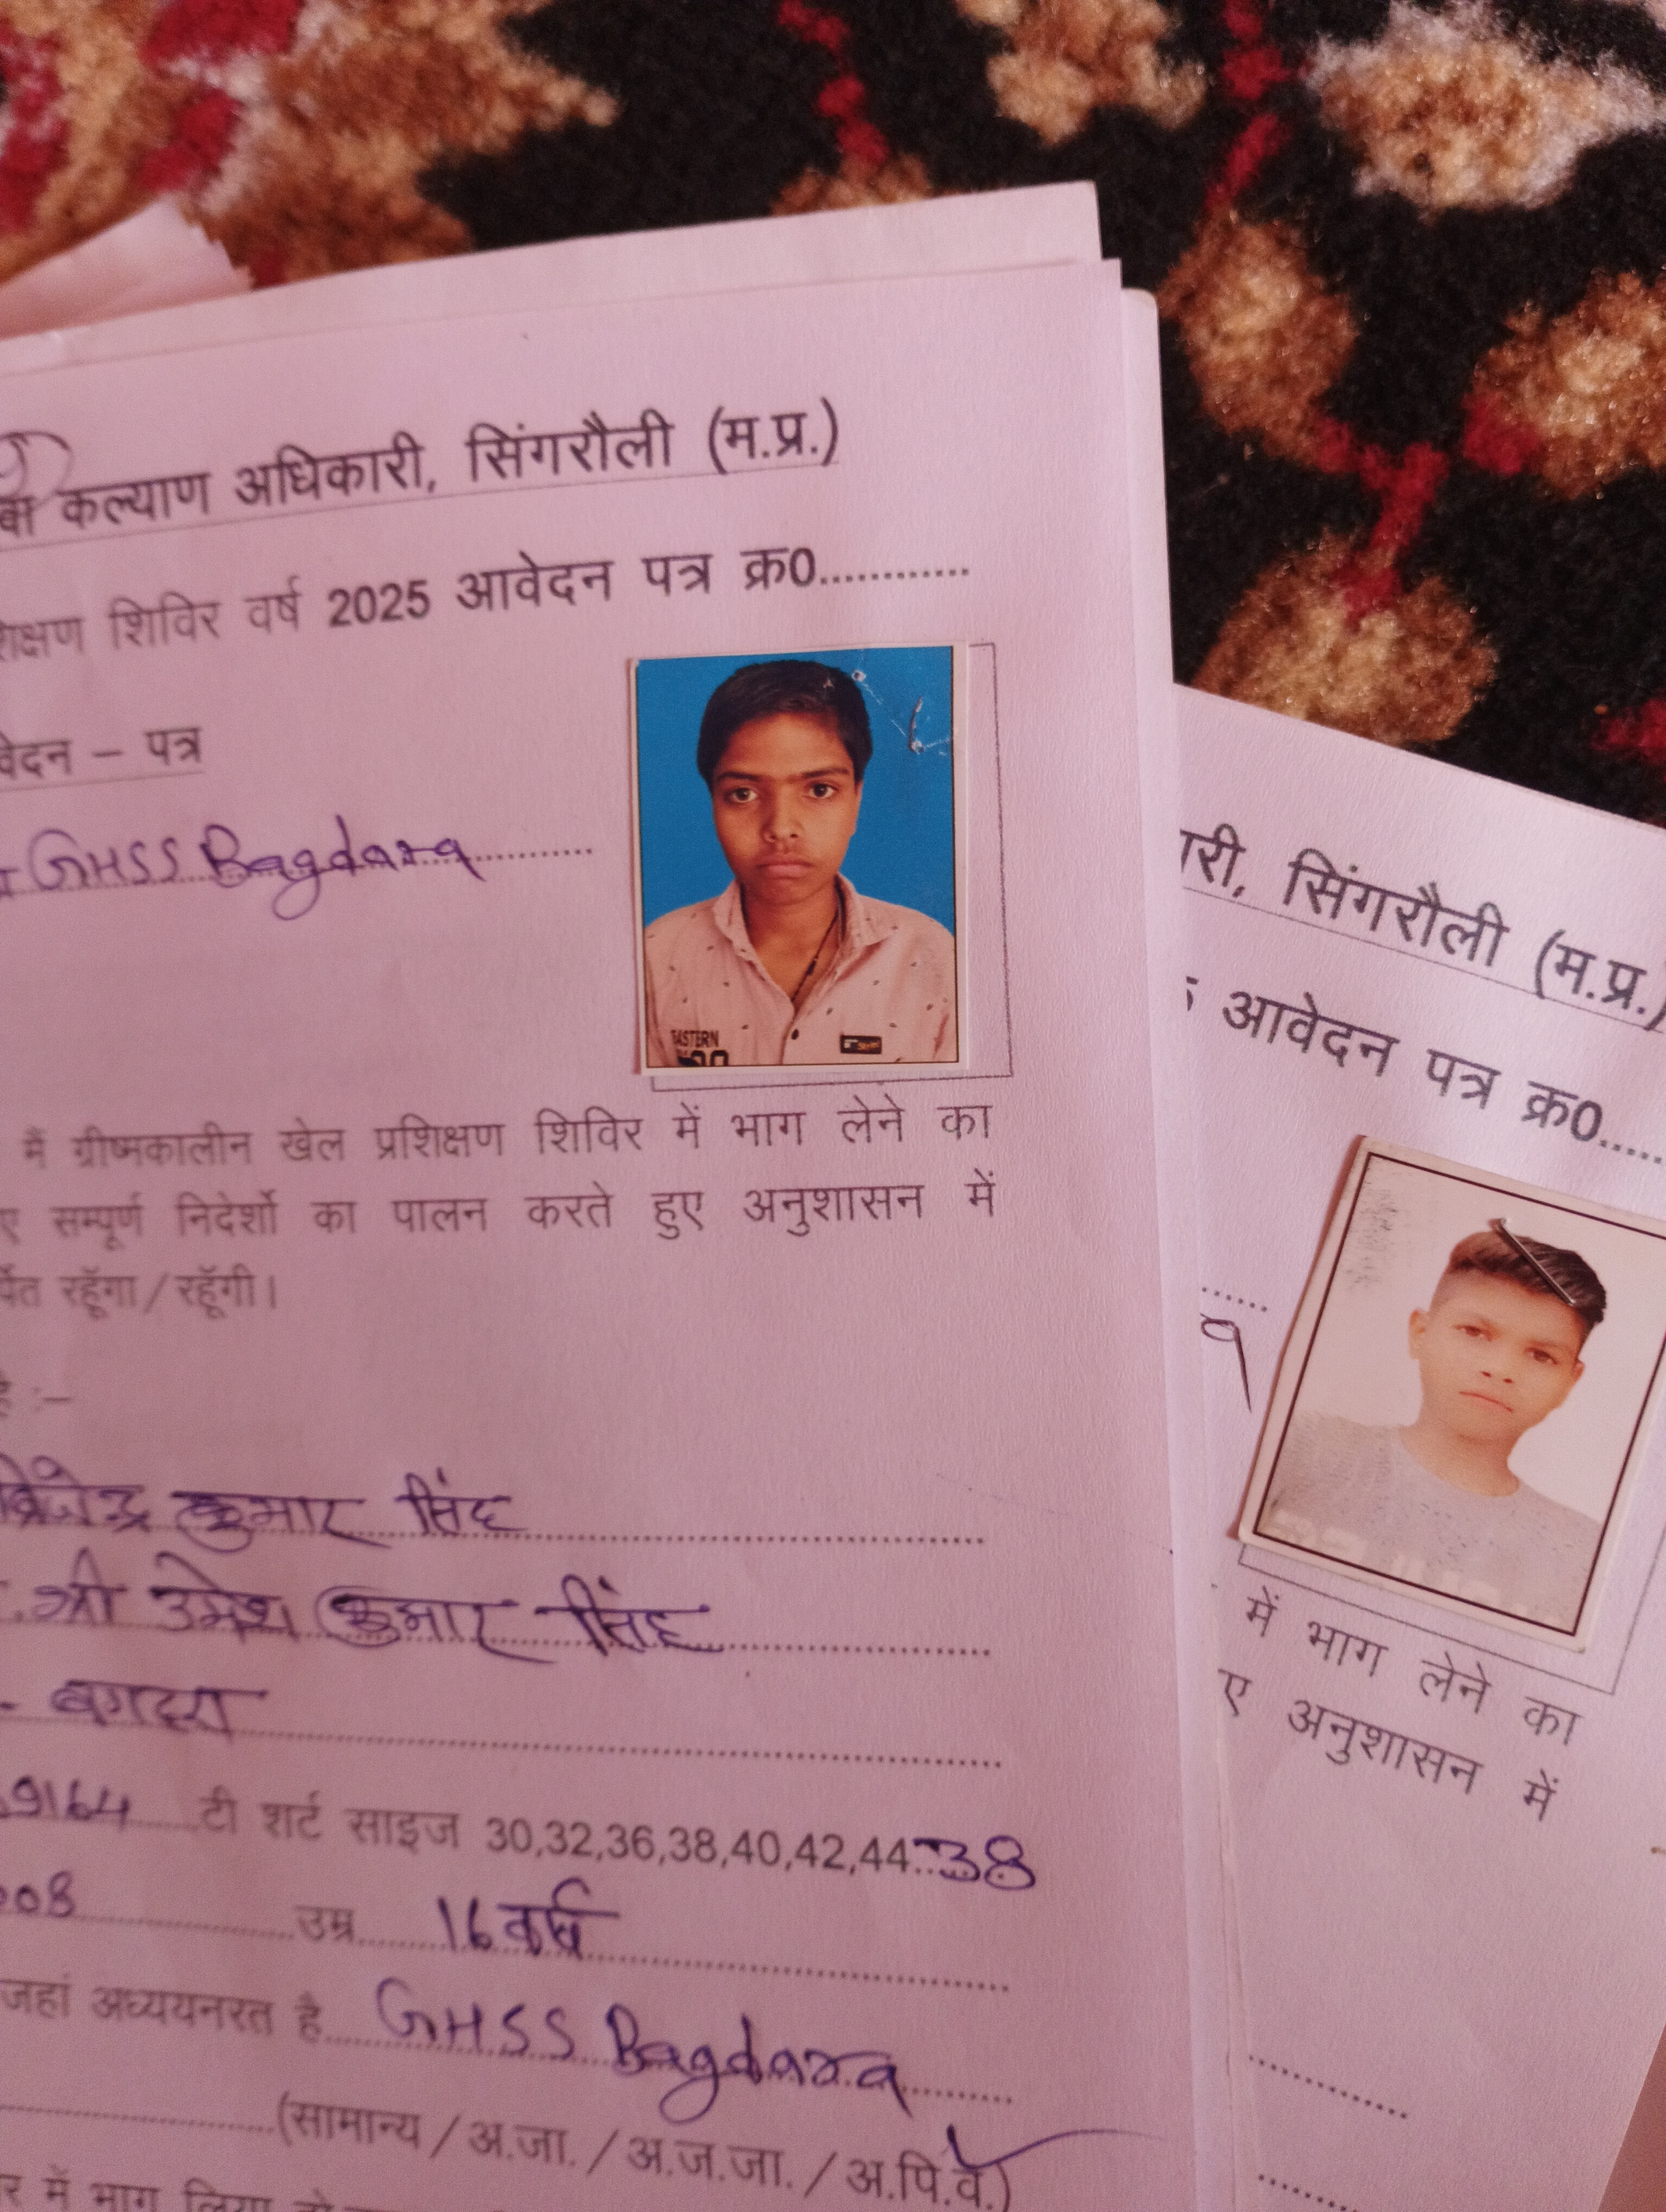 कल्याण अधिकारी, सिंगरौली (म.प्र.)
शिविर वर्ष 2025 आवेदन पत्र क्र0............
– पत्र
GHSS Bagdara
EASTERN
मैं ग्रीष्मकालीन खेल प्रशिक्षण शिविर में भाग लेने का
सम्पूर्ण निदेर्शो का पालन करते हुए अनुशासन में
रहूॅगा/रहूॅगी।
:–
कुमार सिंह
श्री उमेश कुमार सिंह
बगदरा
9164 टी शर्ट साइज 30,32,36,38,40,42,44..38
08 उम्र 16 वर्ष
जहां अध्ययनरत है GHSS Bagdara
(सामान्य/अ.जा./अ.ज.जा./अ.पि.व.)
में भाग लिया
सिंगरौली (म.प्र.)
आवेदन पत्र क्र0.....
में भाग लेने का
अनुशासन में